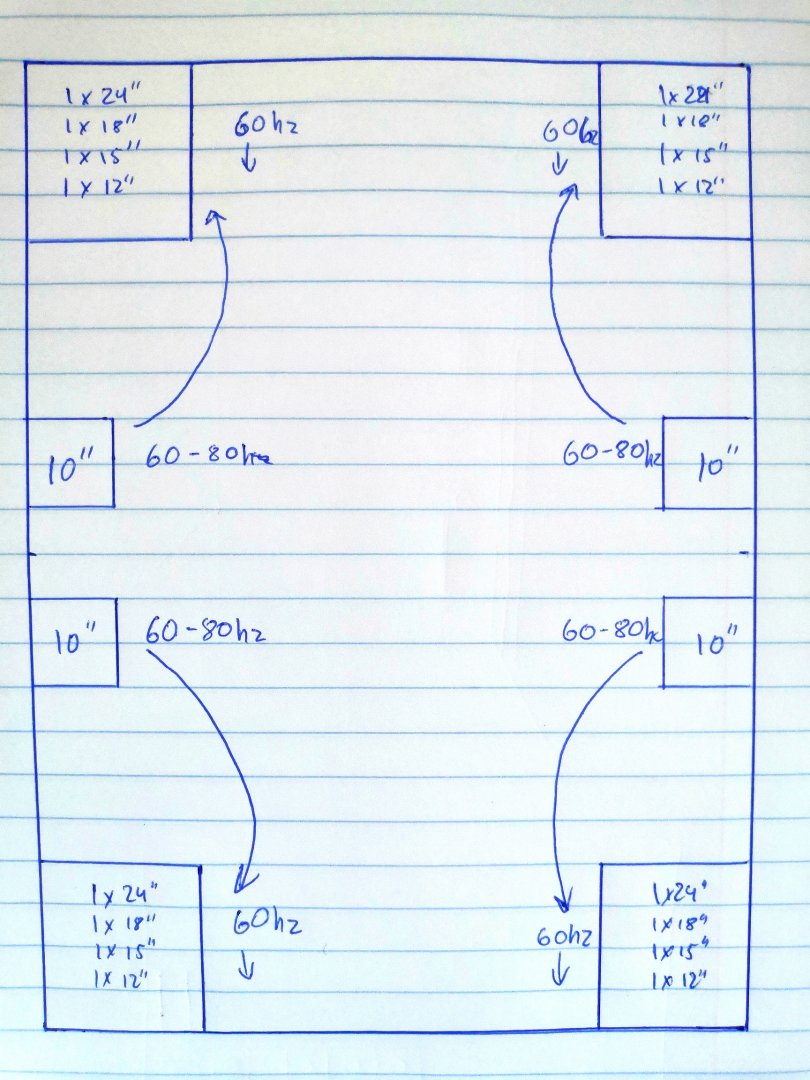 1 x 24"
1 x 18"
1 x 15"
1 x 12"
60hz
↓
60hz
↓
1x 24"
1 x 18"
1 x 15"
1 x 12"
10"
60-80hz
60-80hz
10"
10"
60-80hz
60-80hz
10"
1 x 24"
1 x 18"
1 x 15"
1 x 12"
60hz
↓
60hz
↓
1x24"
1x18"
1x15"
1x12"